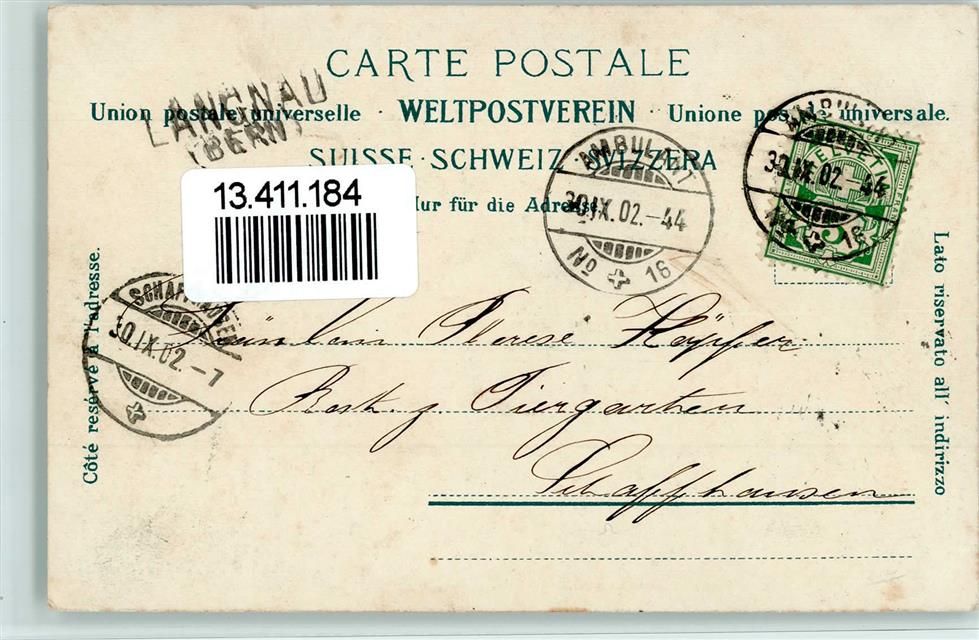 CARTE POSTALE
LANGNAU
(BERN)
Union postale universelle · WELTPOSTVEREIN · Unione postale universale.
SUISSE · SCHWEIZ · SVIZZERA
Nur für die Adresse
13.411.184
AMBULANT
30.IX.02.-44
No 16
AMBULANT
30.IX.02.-44
No 16
HELVETIA
5
SCHAFFHAUSEN
30.IX.02.-7
Côté reservé à l'adresse.
Lato riservato all' indirizzo
Fräulein Therese Küpfer
Rest. z. Tiergarten
Schaffhausen